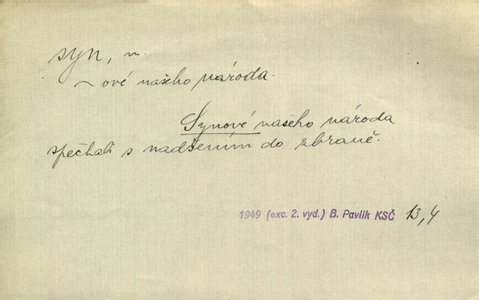 syn, m.
~ ové našeho národa.
Synové našeho národa
spěchali s nadšením do zbraně.
1949 (exc. 2. vyd.) B. Pavlík KSČ 13,4